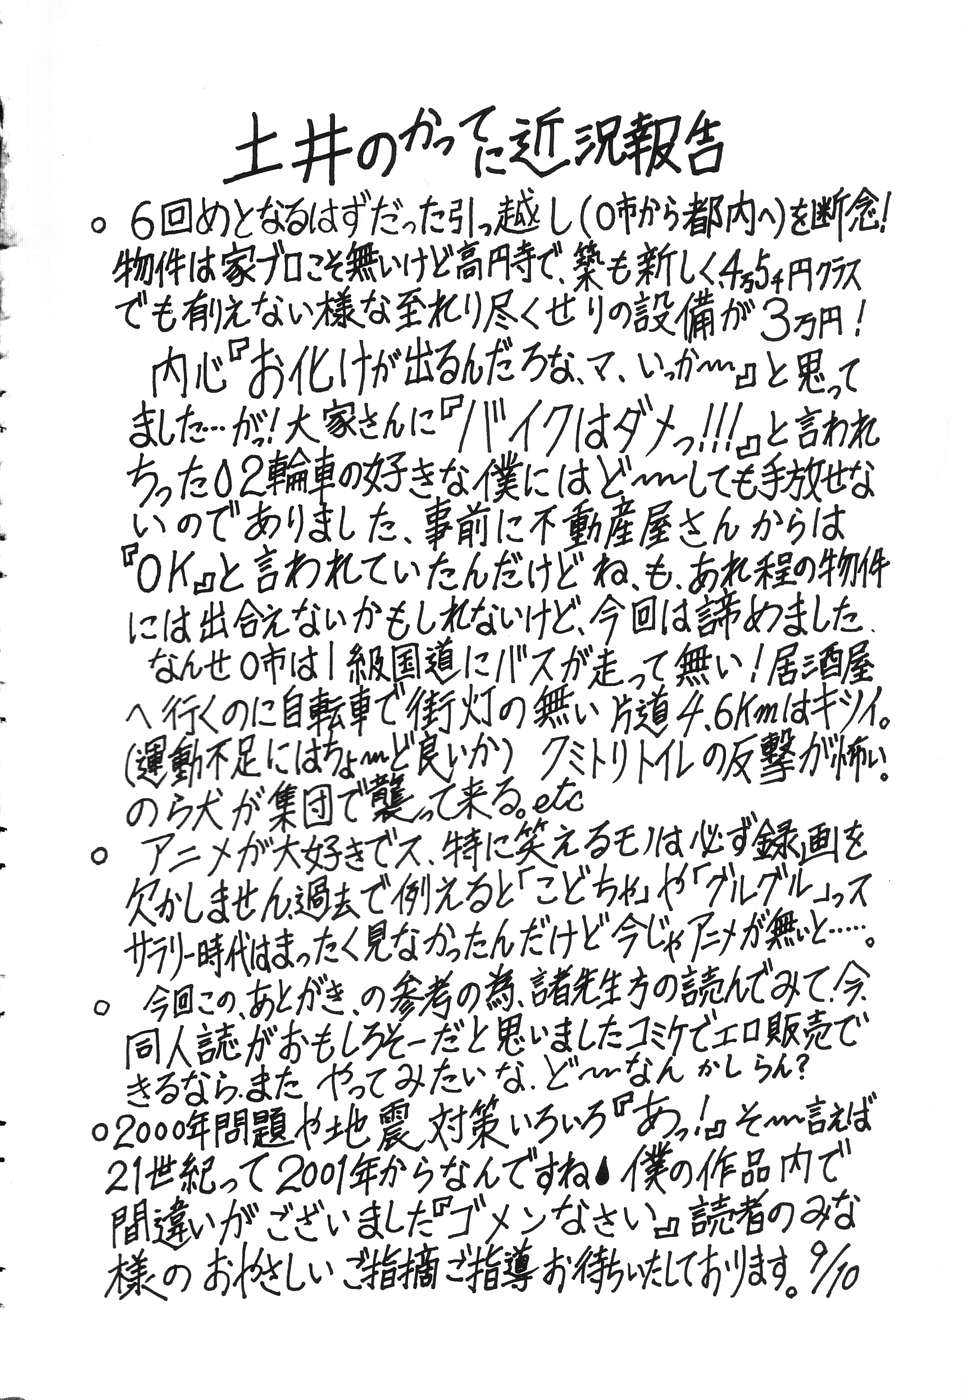 土井のかってに近況報告
○ 6回めとなるはずだった引っ越し(O市から都内へ)を断念!
物件は家ブロこそ無いけど高円寺で、築も新しく、4万5千円クラス
でも有りえない様な至れり尽くせりの設備が3万円!
内心『お化けが出るんだろな、マ、いっか〜』と思って
ました…がっ!大家さんに『バイクはダメっ!!!』と言われ
ちった。2輪車の好きな僕にはど〜しても手放せな
いのでありました、事前に不動産屋さんからは
『OK』と言われていたんだけどね、も、あれ程の物件
には出合えないかもしれないけど、今回は諦めました、
なんせO市は1級国道にバスが走って無い!居酒屋
へ行くのに自転車で街灯の無い片道4.6Kmはキツイ。
(運動不足にはちょ〜ど良いか) クミトリトイレの反撃が怖い。
のら犬が集団で襲って来る。etc
○ アニメが大好きでス、特に笑えるモノは必ず録画を
欠かしません、過去で例えると「こどちゃ」や「グルグル」っス
サラリー時代はまったく見なかったんだけど今じゃアニメが無いと……。
○ 今回この、あとがき、の参考の為、諸先生方の読んでみて、今、
同人誌がおもしろそーだと思いましたコミケでエロ販売で
きるなら、また やってみたいな、ど〜なんかしらん?
○ 2000年問題や地震対策いろいろ『あっ!』そ〜言えば
21世紀って2001年からなんですね 僕の作品内で
間違いがございました『ゴメンなさい』読者のみな
様のおやさしいご指摘ご指導お待ちいたしております。9/10